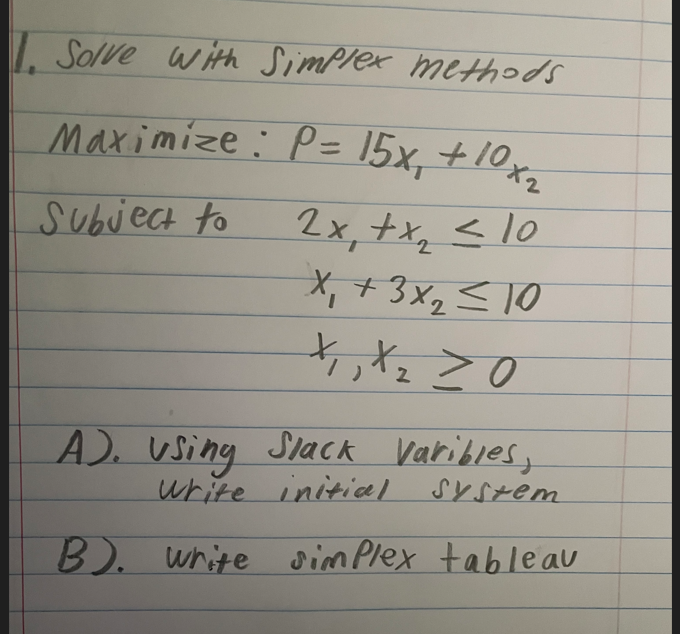 1. Solve with Simplex methods
Maximize: P = 15x₁ + 10x₂
Subject to 2x₁ + x₂ ≤ 10
x₁ + 3x₂ ≤ 10
x₁, x₂ ≥ 0
A). Using Slack Varibles,
write initial system
B). Write simplex tableau